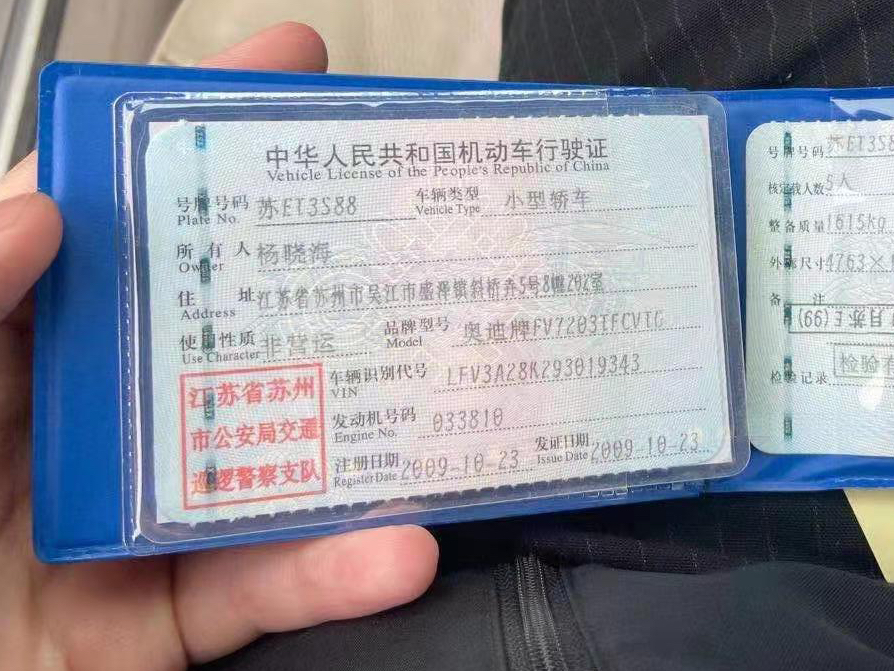 中华人民共和国机动车行驶证
Vehicle License of the People's Republic of China
号牌号码 苏ET3S88 车辆类型 小型轿车
Plate No. Vehicle Type
所有人 杨晓海
Owner
住址 江苏省苏州市吴江市盛泽镇斜桥弄5号8幢202室
Address
使用性质 非营运 品牌型号 奥迪牌FV7203TFCVTG
Use Character Model
江苏省苏州
市公安局交通
巡逻警察支队
车辆识别代号 LFV3A28K293019343
VIN
发动机号码 033810
Engine No.
注册日期 2009-10-23 发证日期 2009-10-23
Register Date Issue Date
号牌号码 苏ET3S8
核定载人数 5人
整备质量 1615kg
外廓尺寸 4763×
备注
检验记录 检验